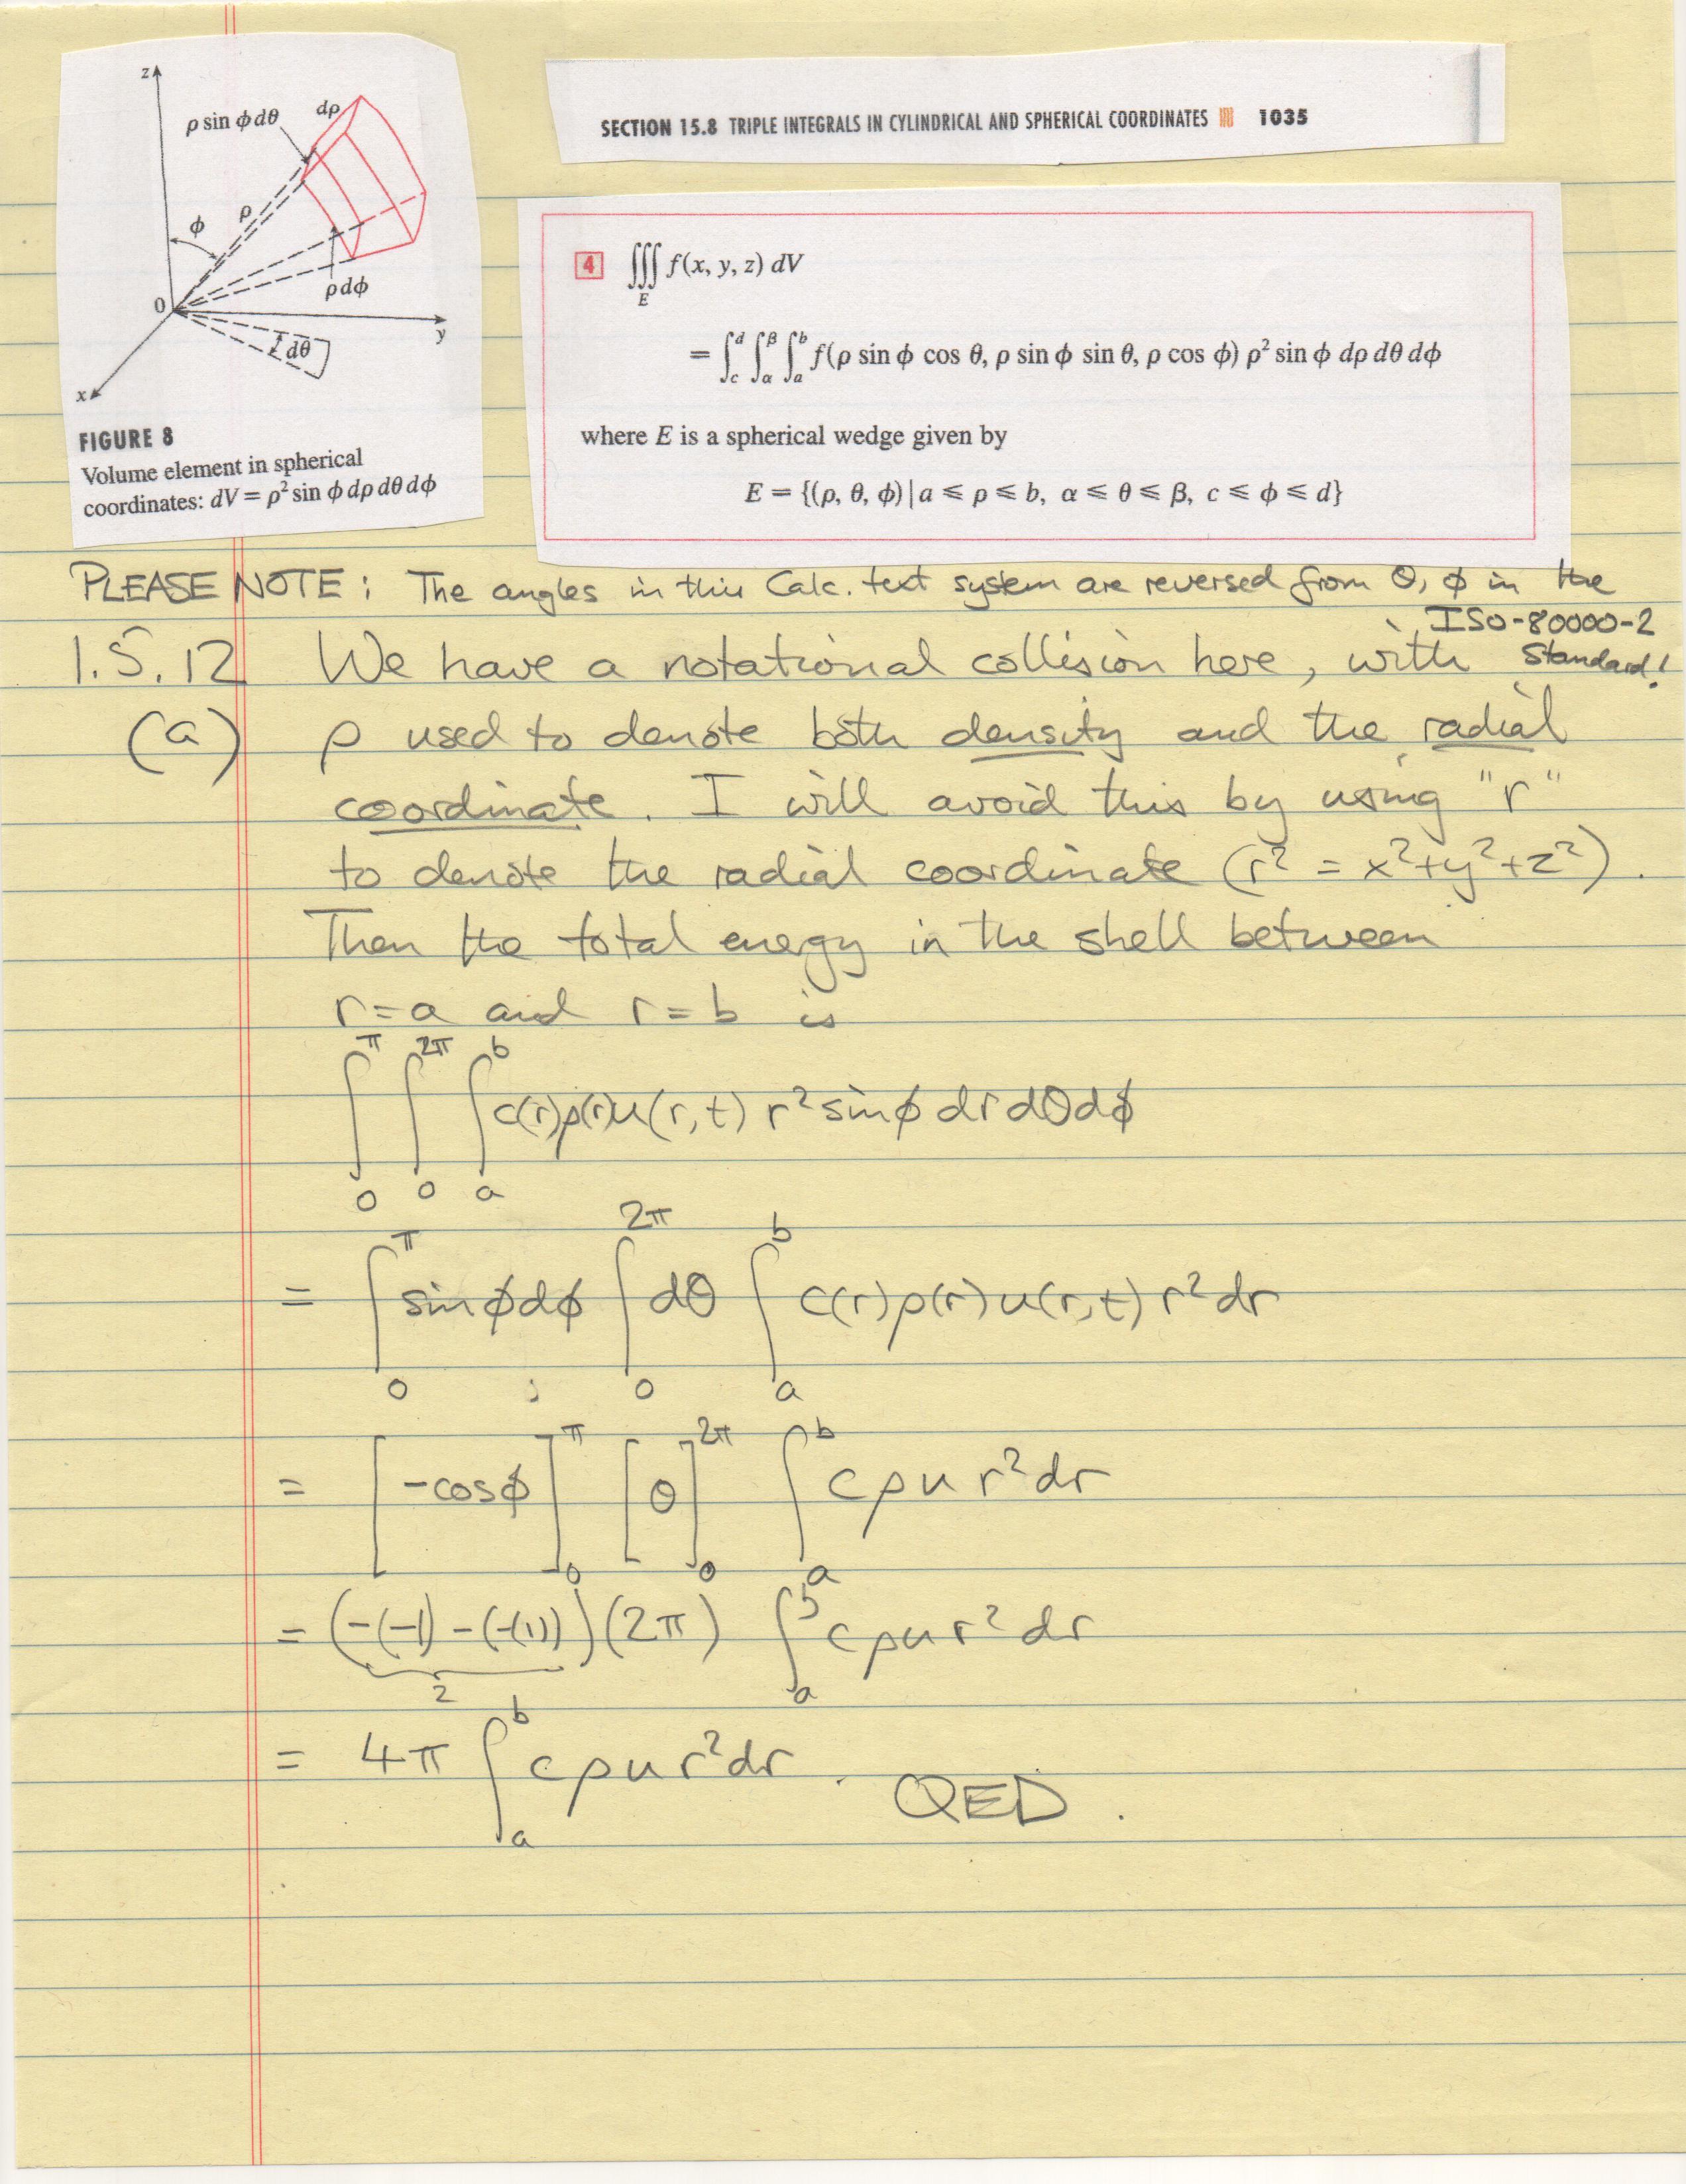 z
ρ sin ϕ dθ
dρ
ρ
ϕ
0
ρ dϕ
y
dθ
x
FIGURE 8
Volume element in spherical
coordinates: dV = ρ² sin ϕ dρ dθ dϕ
SECTION 15.8 TRIPLE INTEGRALS IN CYLINDRICAL AND SPHERICAL COORDINATES 1035
4 ∭_E f(x, y, z) dV
= ∫_c^d ∫_α^β ∫_a^b f(ρ sin ϕ cos θ, ρ sin ϕ sin θ, ρ cos ϕ) ρ² sin ϕ dρ dθ dϕ
where E is a spherical wedge given by
E = {(ρ, θ, ϕ) | a ⩽ ρ ⩽ b, α ⩽ θ ⩽ β, c ⩽ ϕ ⩽ d}
PLEASE NOTE: The angles in this Calc. text system are reversed from θ, ϕ in the
ISO-80000-2
Standard!
1.5.12 We have a notational collision here, with
(a) ρ used to denote both density and the radial
coordinate. I will avoid this by using "r"
to denote the radial coordinate (r² = x²+y²+z²).
Then the total energy in the shell between
r=a and r=b is
∫_0^π ∫_0^2π ∫_a^b c(r)ρ(r)u(r,t) r² sinϕ dr dθ dϕ
= ∫_0^π sinϕ dϕ ∫_0^2π dθ ∫_a^b c(r)ρ(r)u(r,t) r² dr
= [-cosϕ]_0^π [θ]_0^2π ∫_a^b cρu r² dr
= (-(-1) - (-(1)))(2π) ∫_a^b cρu r² dr
2
= 4π ∫_a^b cρu r² dr. QED.